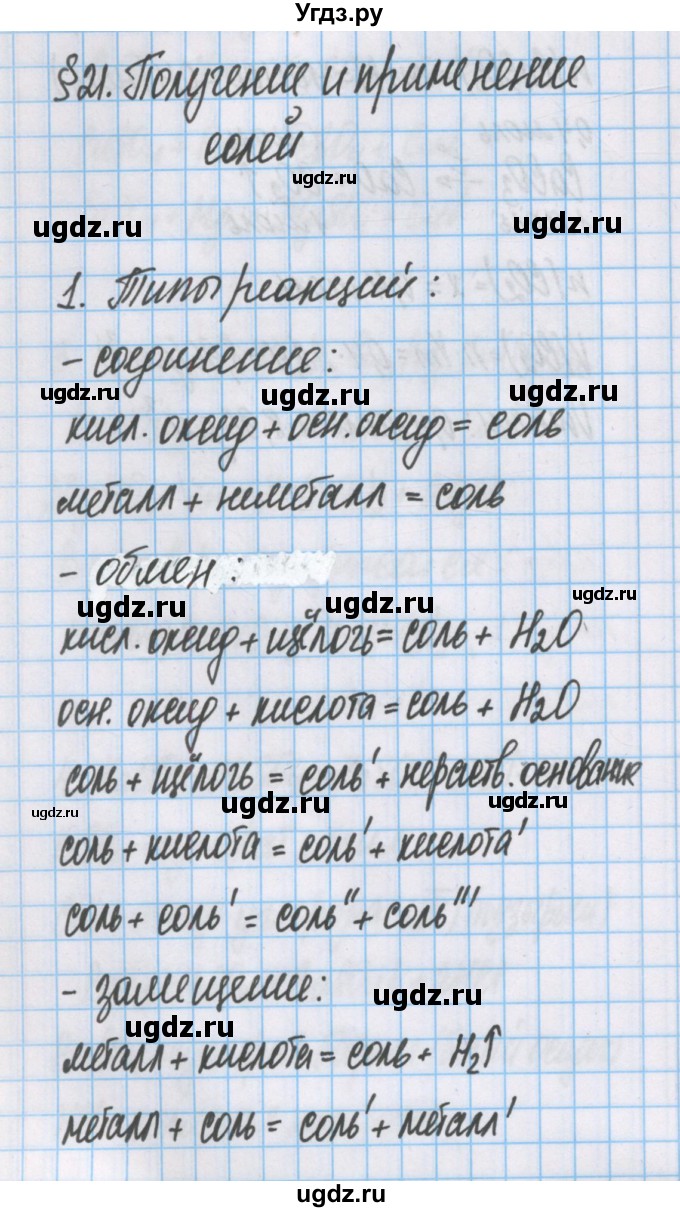 Угдз.ру
§21. Получение и применение
солей
ugdz.ru
ugdz.ru
ugdz.ru
1. Типы реакций:
- соединение:
ugdz.ru
ugdz.ru
ugdz.ru
кисл. оксид + осн. оксид = соль
металл + неметалл = соль
- обмен:
ugdz.ru
ugdz.ru
ugdz.ru
кисл. оксид + щёлочь = соль + H₂O
осн. оксид + кислота = соль + H₂O
соль + щёлочь = соль' + нераств. основание
ugdz.ru
ugdz.ru
ugdz.ru
соль + кислота = соль' + кислота'
соль + соль' = соль'' + соль'''
- замещение:
ugdz.ru
ugdz.ru
металл + кислота = соль + H₂↑
металл + соль = соль' + металл'
ugdz.ru